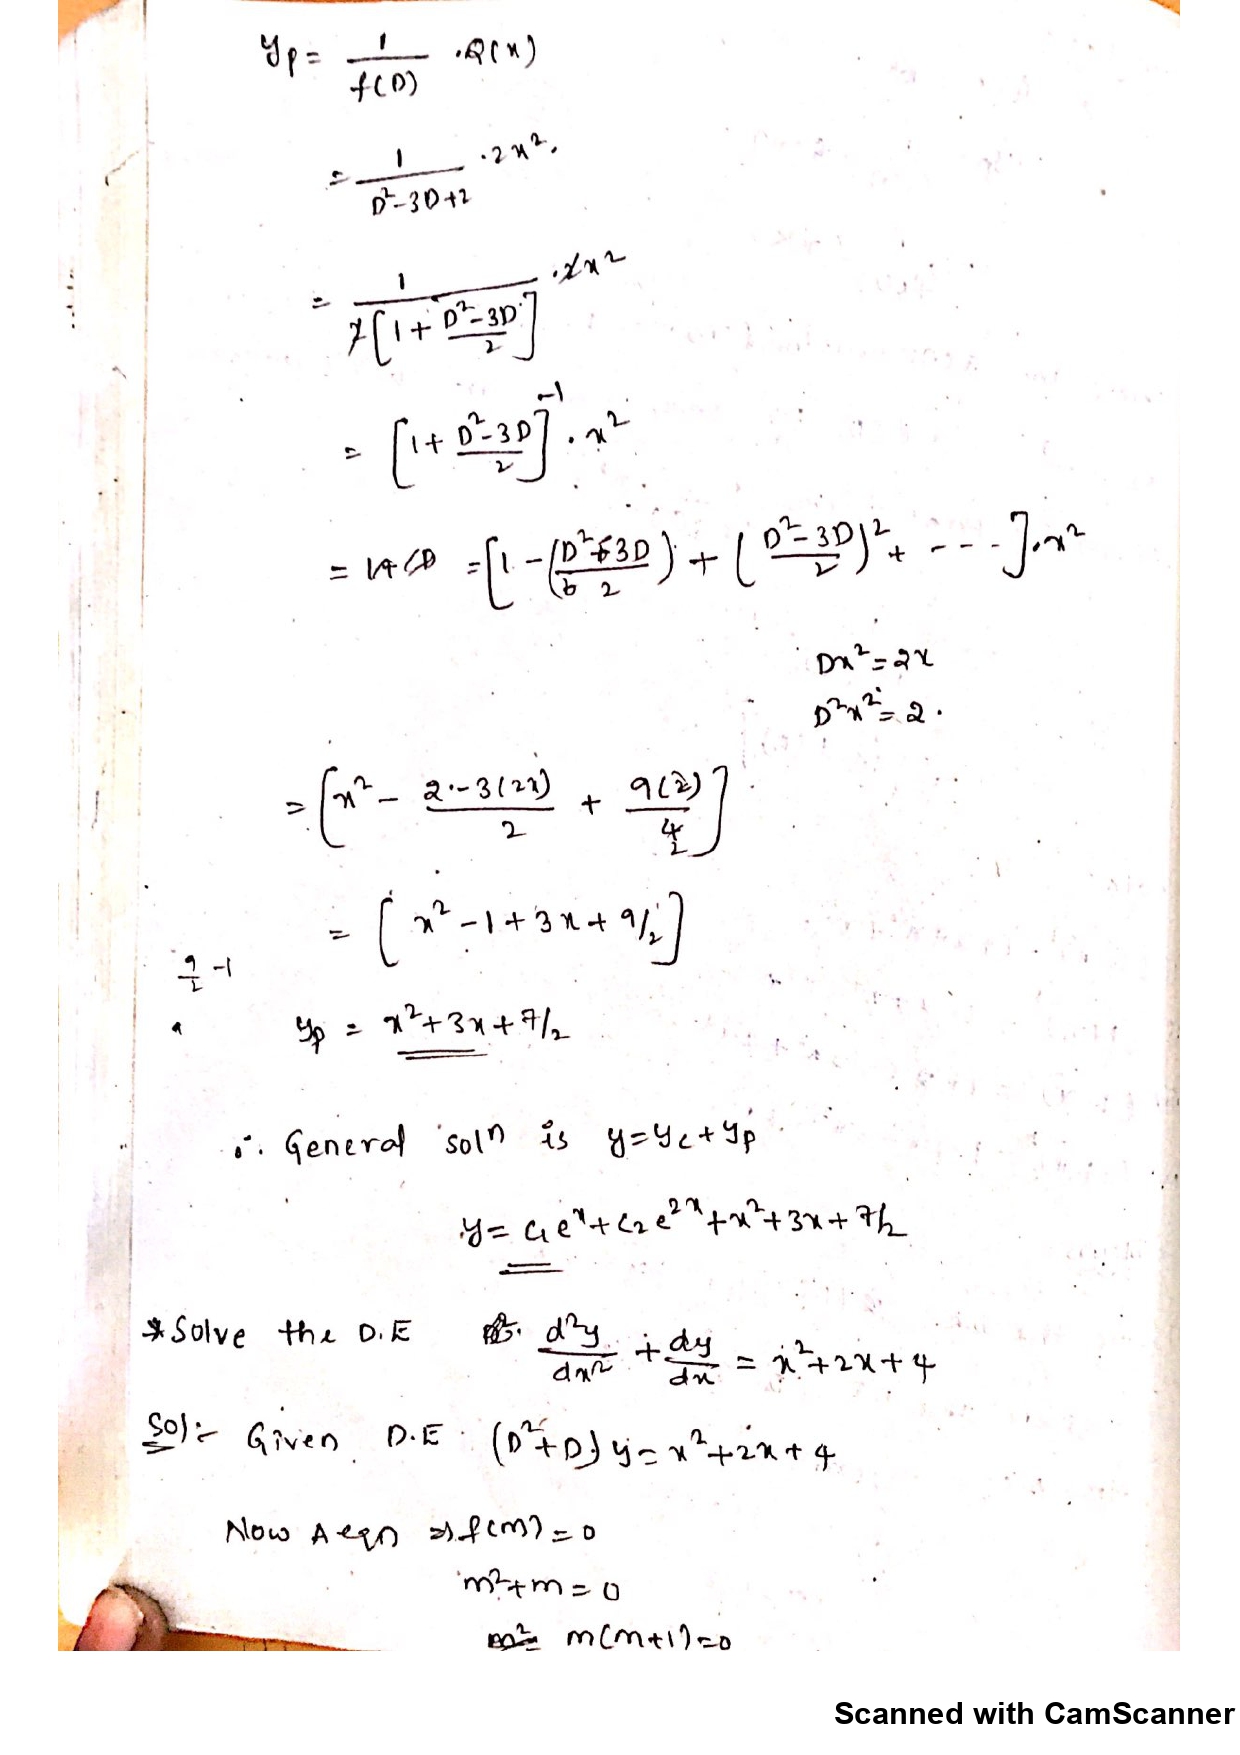 yp = 1/f(D) .Q(x)
= 1/(D²-3D+2) .2x².
= 1/(2[1+(D²-3D)/2]) .2x²
= [1+(D²-3D)/2]⁻¹ . x²
= [1-((D²-3D)/2)+((D²-3D)/2)²+ - - - ].x²
Dx²=2x
D²x²=2.
= [x² - (2-3(2x))/2 + 9(2)/4]
= [x²-1+3x+9/2]
9/2 -1
yp = x²+3x+7/2
∴ General solⁿ is y=yc+yp
y= c₁eˣ+c₂e²ˣ+x²+3x+7/2
* Solve the D.E d²y/dx² + dy/dx = x²+2x+4
Sol:- Given D.E (D²+D)y=x²+2x+4
Now A eqn ⇒ f(m)=0
m²+m=0
m(m+1)=0
Scanned with CamScanner